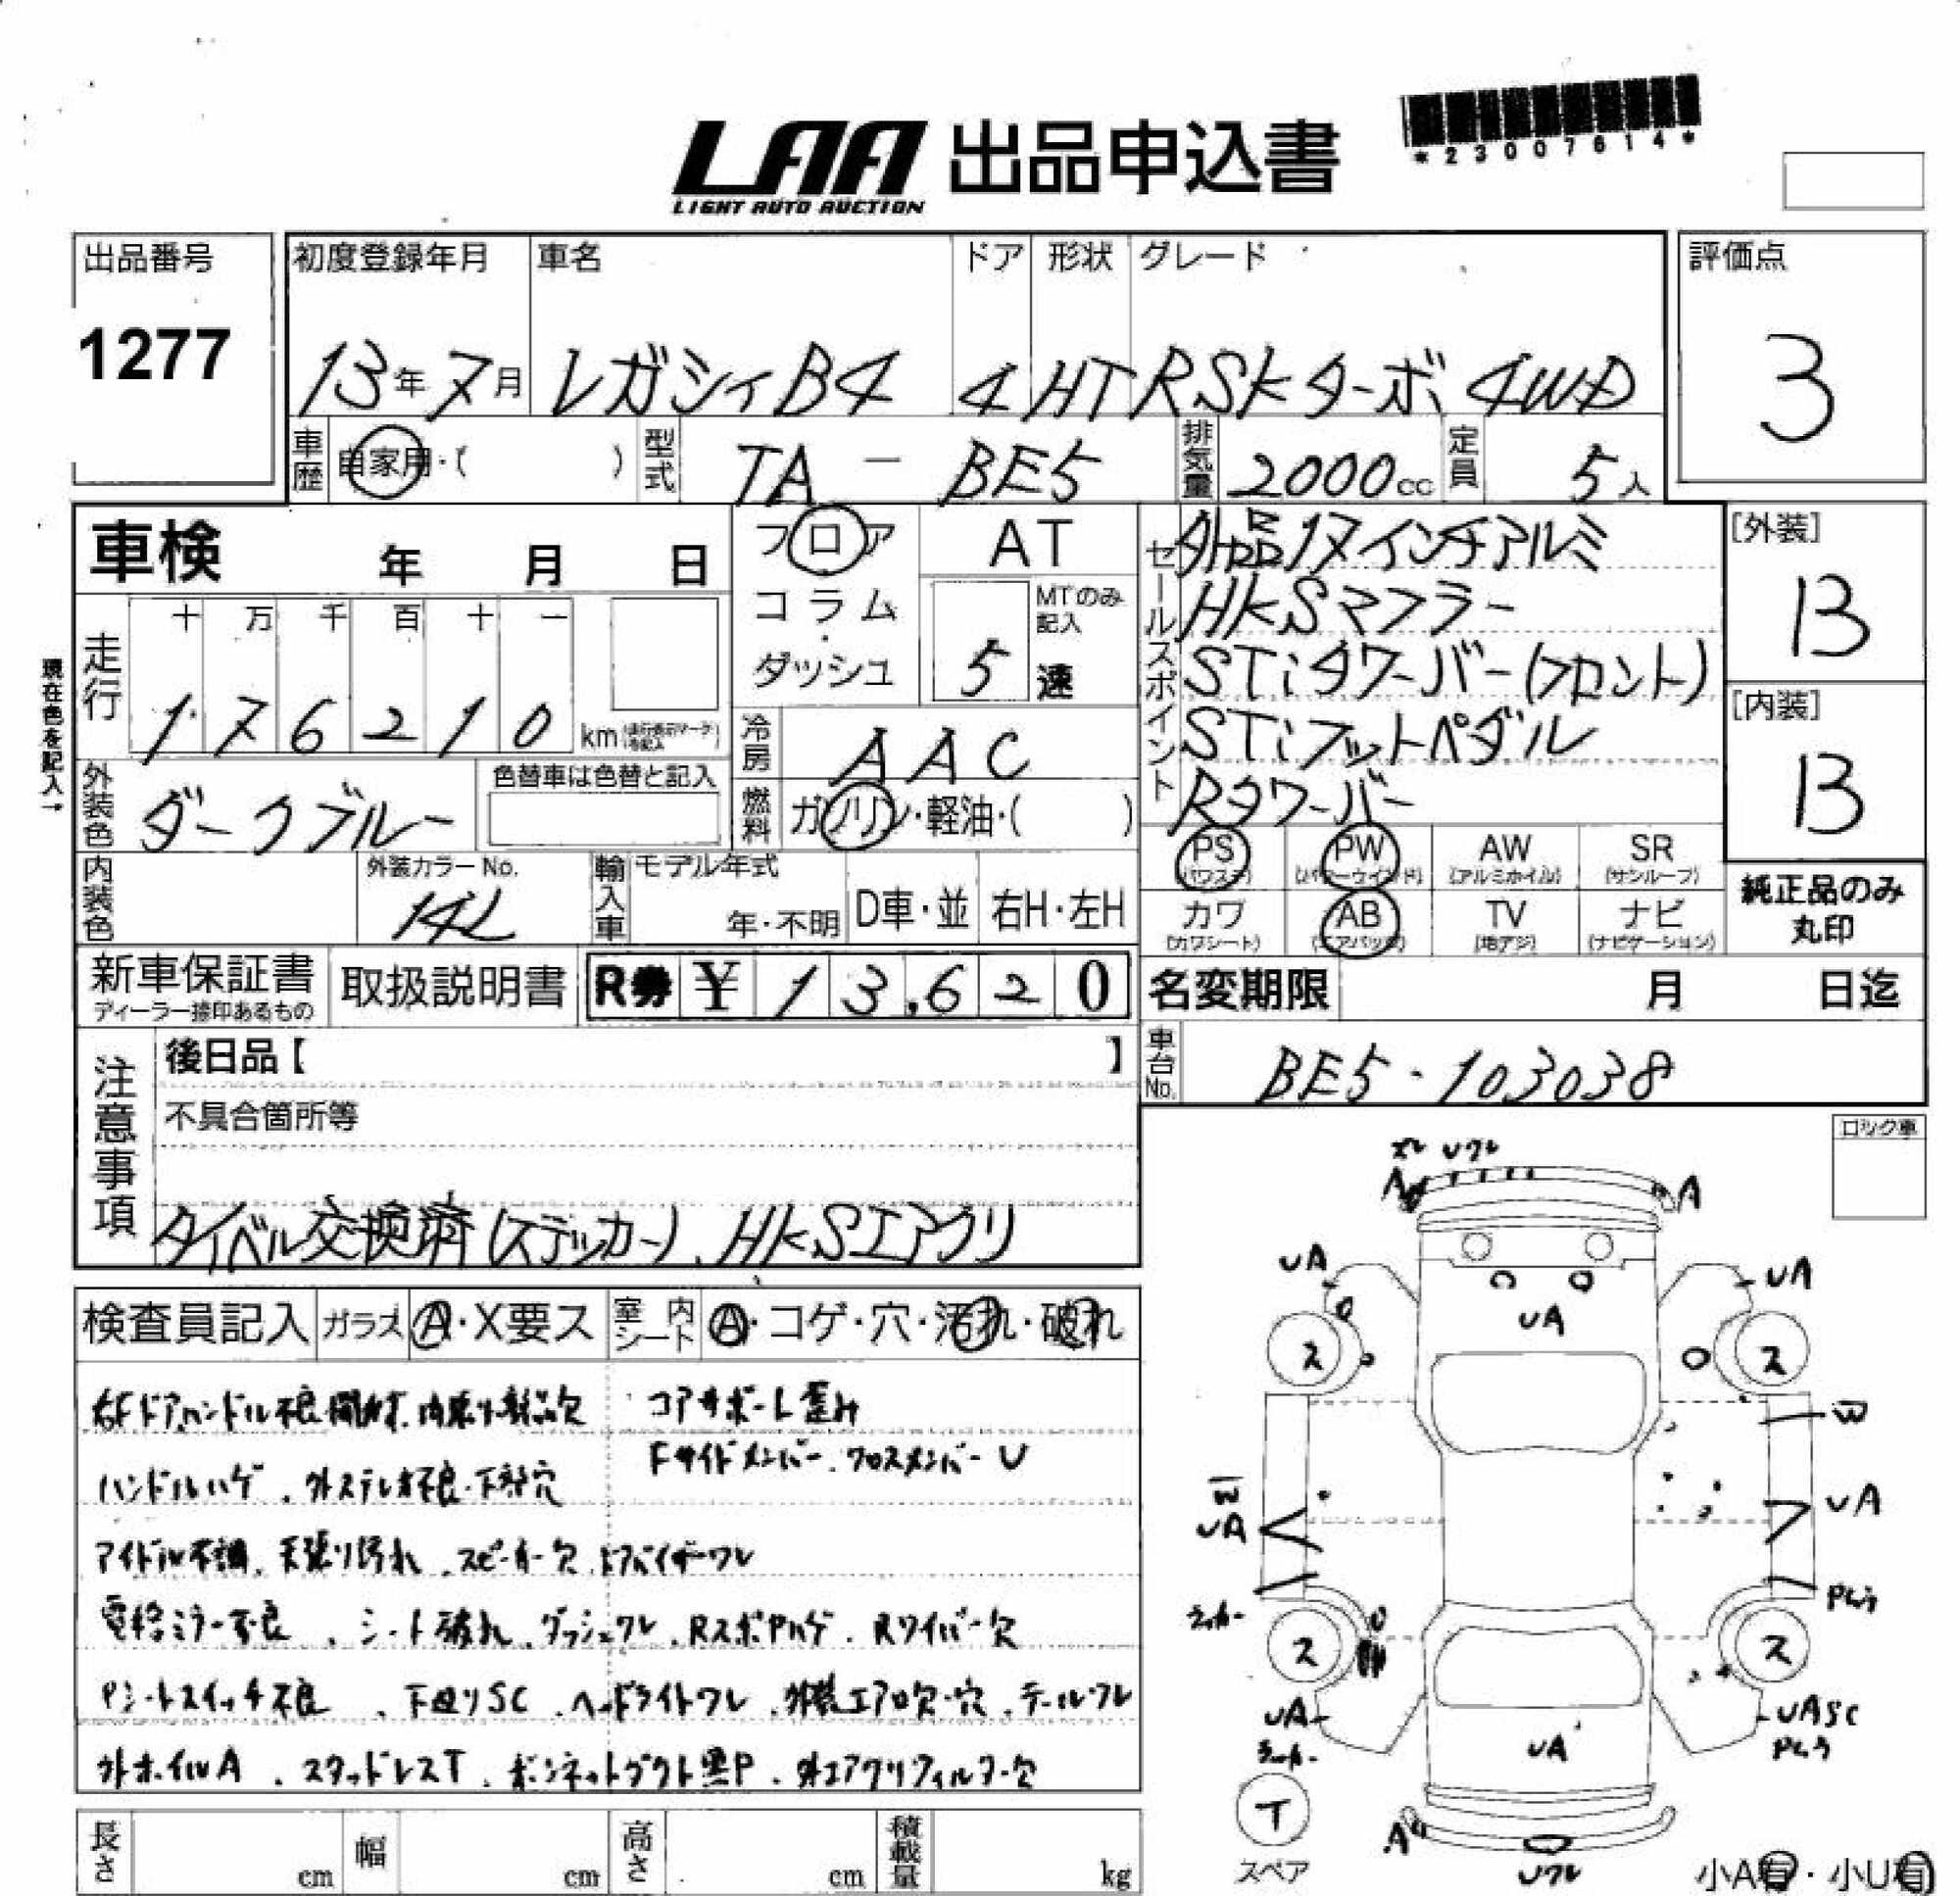 LAA 出品申込書
LIGHT AUTO AUCTION
*23007614*
出品番号
1277
初度登録年月 車名 ドア 形状 グレード
13年7月 レガシィB4 4 HT RSKターボ 4WD
評価点
3
車歴 自家用・( ) 型式 TA - BE5 排気量 2000cc 定員 5人
車検 年 月 日
フロア
コラム
・
ダッシュ
AT
MTのみ記入
5 速
セールスポイント
外品17インチアルミ
HKSマフラー
STiタワーバー(フロント)
STiフットペダル
Rタワーバー
[外装]
B
[内装]
B
現在色を記入→
走行 十 万 千 百 十 一
1 7 6 2 1 0 km
冷房 A A C
外装色 ダークブルー 色替車は色替と記入
燃料 ガソリン・軽油・( )
内装色 外装カラーNo. 14L
輸入車 モデル年式 年・不明 D車・並 右H・左H
PS (パワステ) PW (パワーウインド) AW (アルミホイル) SR (サンルーフ)
カワ (カワシート) AB (エアバッグ) TV (地デジ) ナビ (ナビゲーション)
純正品のみ
丸印
新車保証書
ディーラー捺印あるもの
取扱説明書
R券 ¥ 1 3,6 2 0
名変期限 月 日迄
車台No. BE5-103038
注意事項
後日品【 】
不具合箇所等
タイベル交換済(ステッカー)、HKSエアクリ
ロック車
検査員記入 ガラス A・X要ス 室内シート A・コゲ・穴・汚れ・破れ
右Fドアハンドル不良 内張り部品欠 コアサポート歪み
ハンドルハゲ、外ステレオ不良・下部穴 Fサイドメンバー、クロスメンバーU
アイドル不調、天張り汚れ、スピーカー欠、ドアバイザーワレ
電格ミラー不良、シート破れ、ダッシュワレ、RスポPハゲ、Rワイパー欠
Pシートスイッチ不良、下廻りSC、ヘッドライトワレ、外装エアロ欠・穴、テールワレ
外ホイルA、スタッドレスT、ボンネットダクト黒P、外エアクリフィルター欠
Uワレ
A A
UA UA
UA
ス ス
W
W
UA UA
ス ス
UA UASC
UA
T
スペア
A
Uワレ
小A有・小U有
長さ cm 幅 cm 高さ cm 積載量 kg